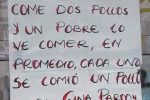 COME DOS POLLOS
Y UN POBRE LO
VE COMER, EN
PROMEDIO, CADA UNO
SE COMIÓ UN POLLO
GINA PARODY